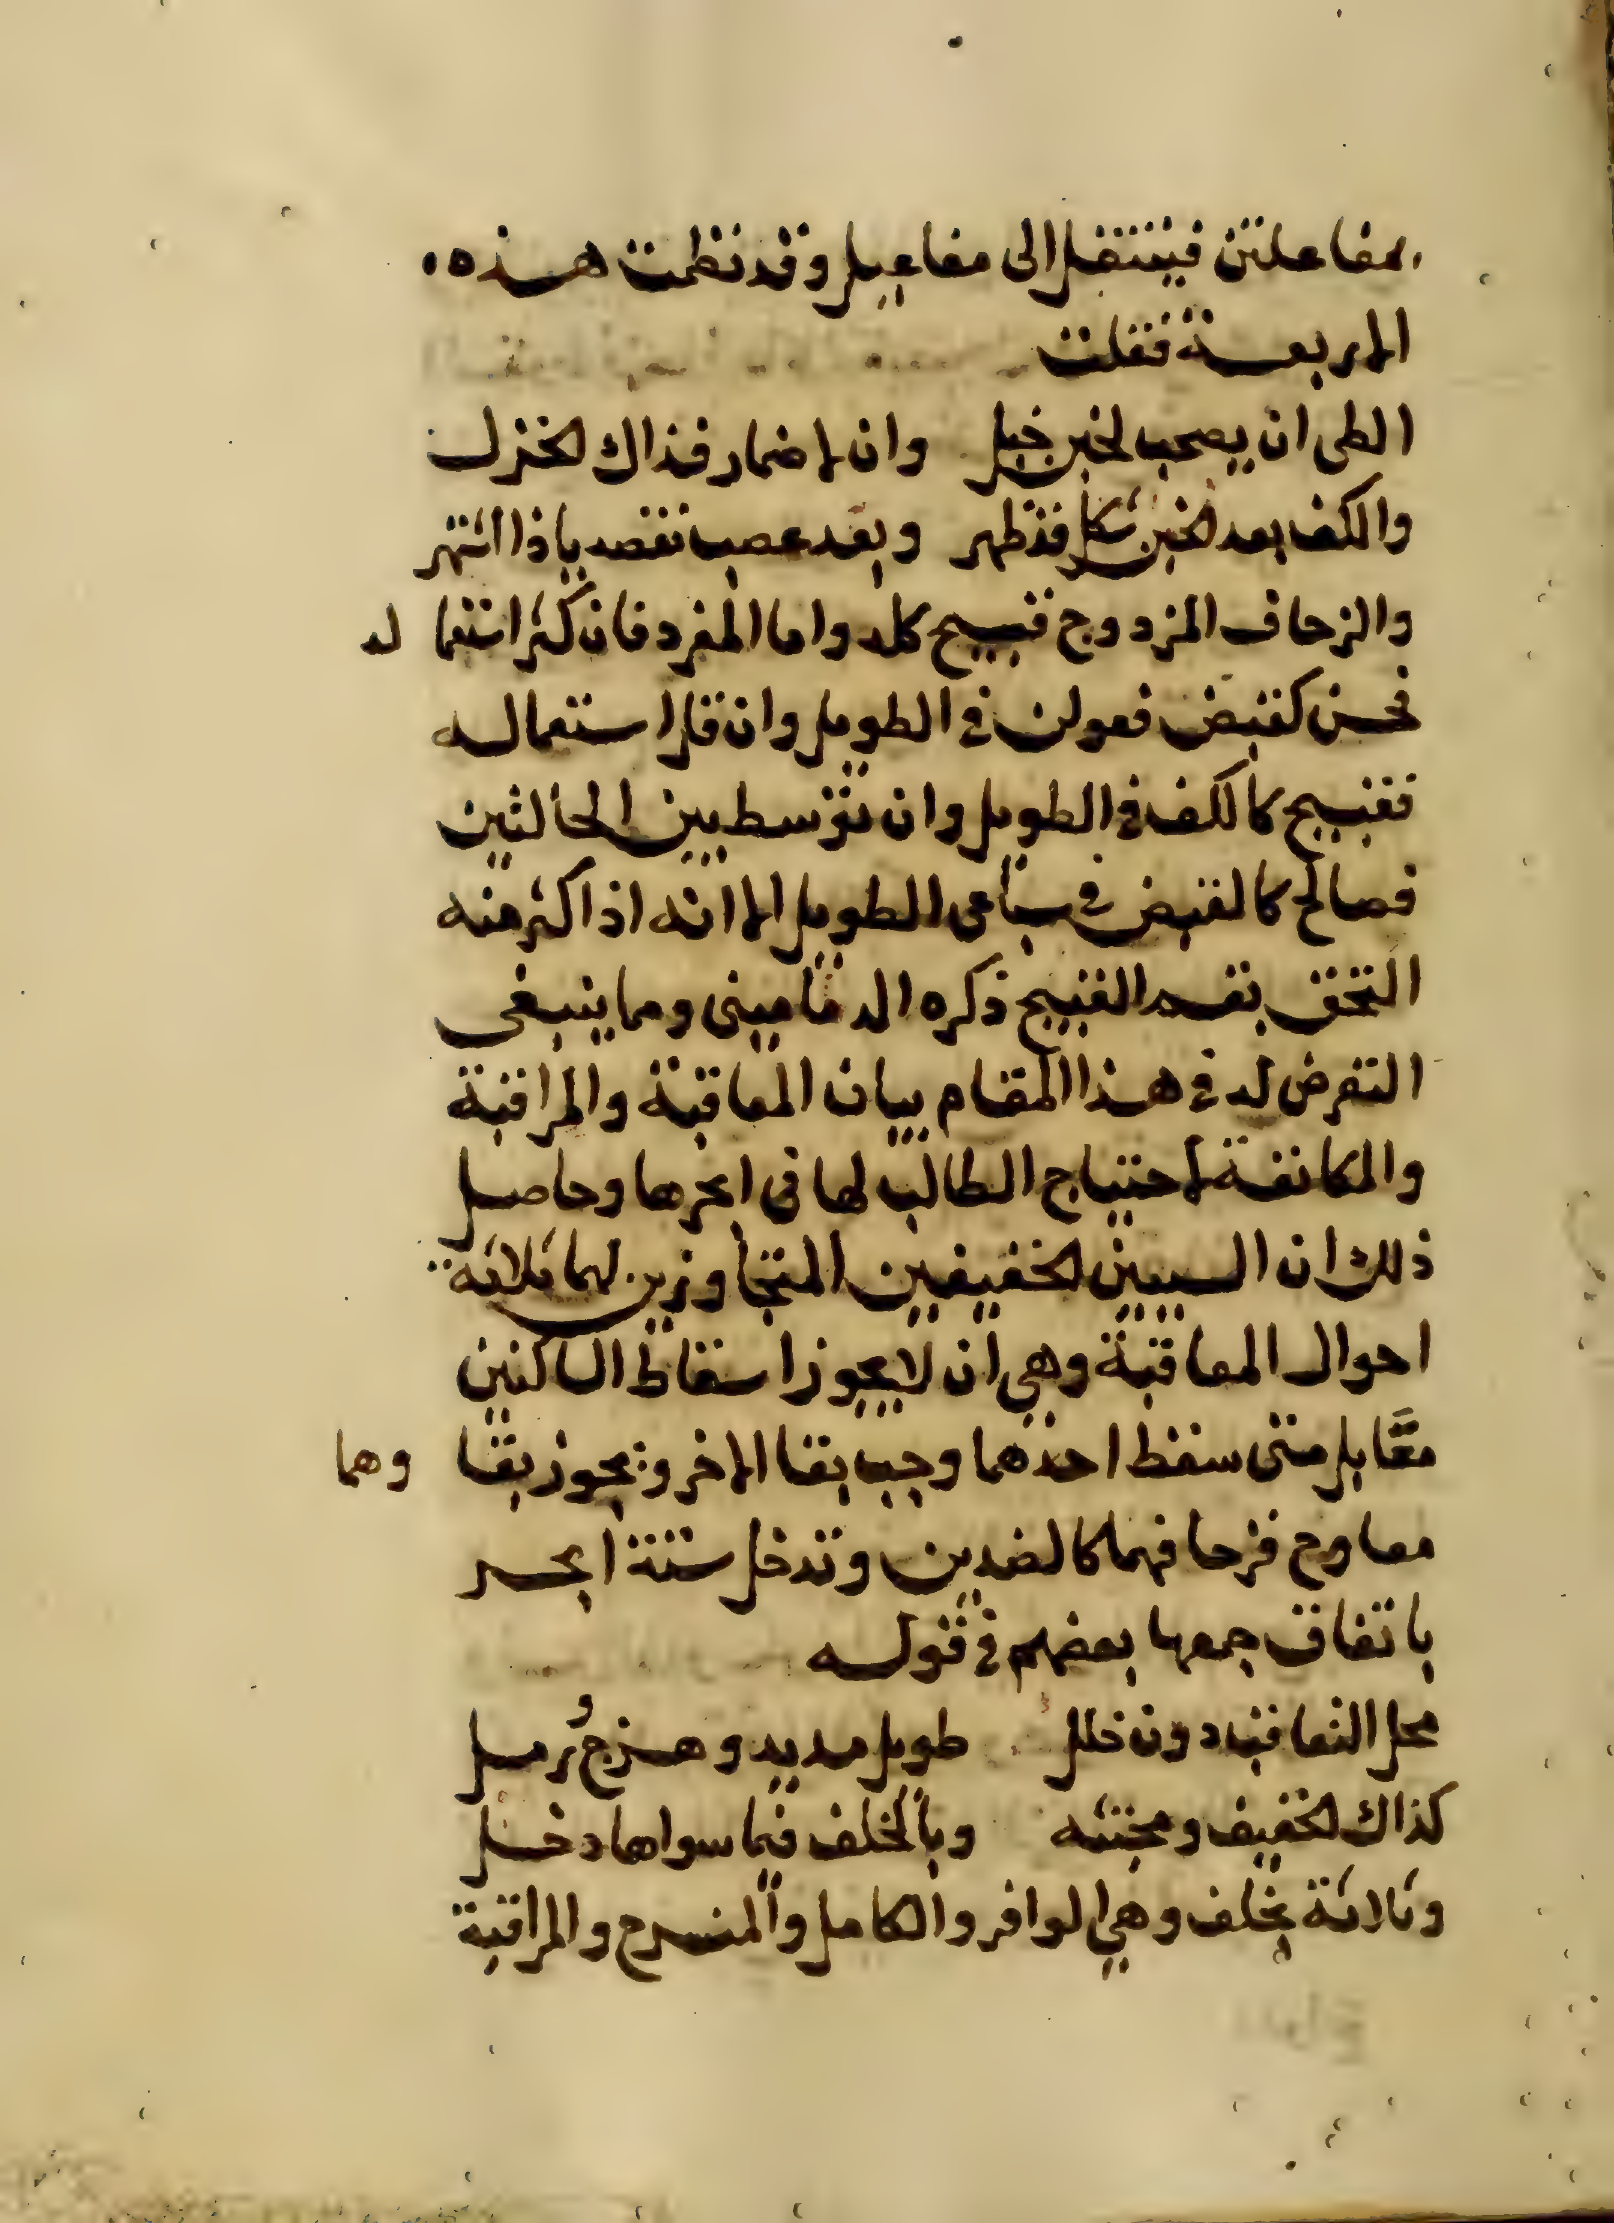 مفاعلتن فينتقل الى مفاعيل وقد نظمت هذه
الاربعة فقلت
الطى ان يصحب لخبن خبل وان لاضمار فذاك لخزل
والكف بعد لخبن شكل قد ظهر وبعد عصب نقصه يا ذا اشتهر
والزحاف المزدوج قبيح كله واما المفرد فان كثر استعما له
فحسن كقبض فعولن في الطويل وان قل استعماله
فقبيح كالكف في الطويل وان توسط بين الحالتين
فصالح كالقبض في سباعى الطويل الا انه اذا اكثر منه
التحق بقسم القبيح ذكره الدمامينى ومما ينبغى
التعرض له في هذا المقام بيان المعاقبة والمراقبة
والمكانفة لاحتياج الطالب لها فى ابحرها وحاصل
ذلك ان السببين لخفيفين المتجاوزين لهما ثلاثة
احوال المعاقبة وهي ان لا يجوز اسقاط الساكنين
معا بل متى سقط احدهما وجب بقا الاخر ويجوز بقا وهما
معا وح فزحافهما كالضدين وتدخل ستة ابحر
باتفاق جمعها بعضهم في قوله
محل التعاقب دون خلل طويل مديد وهزج ورمل
كذاك لخفيف ومجتثه وبالخلف فيما سواها دخل
وثلاثة بخلف وهي الوافر والكامل والمنسرح والمراقبة